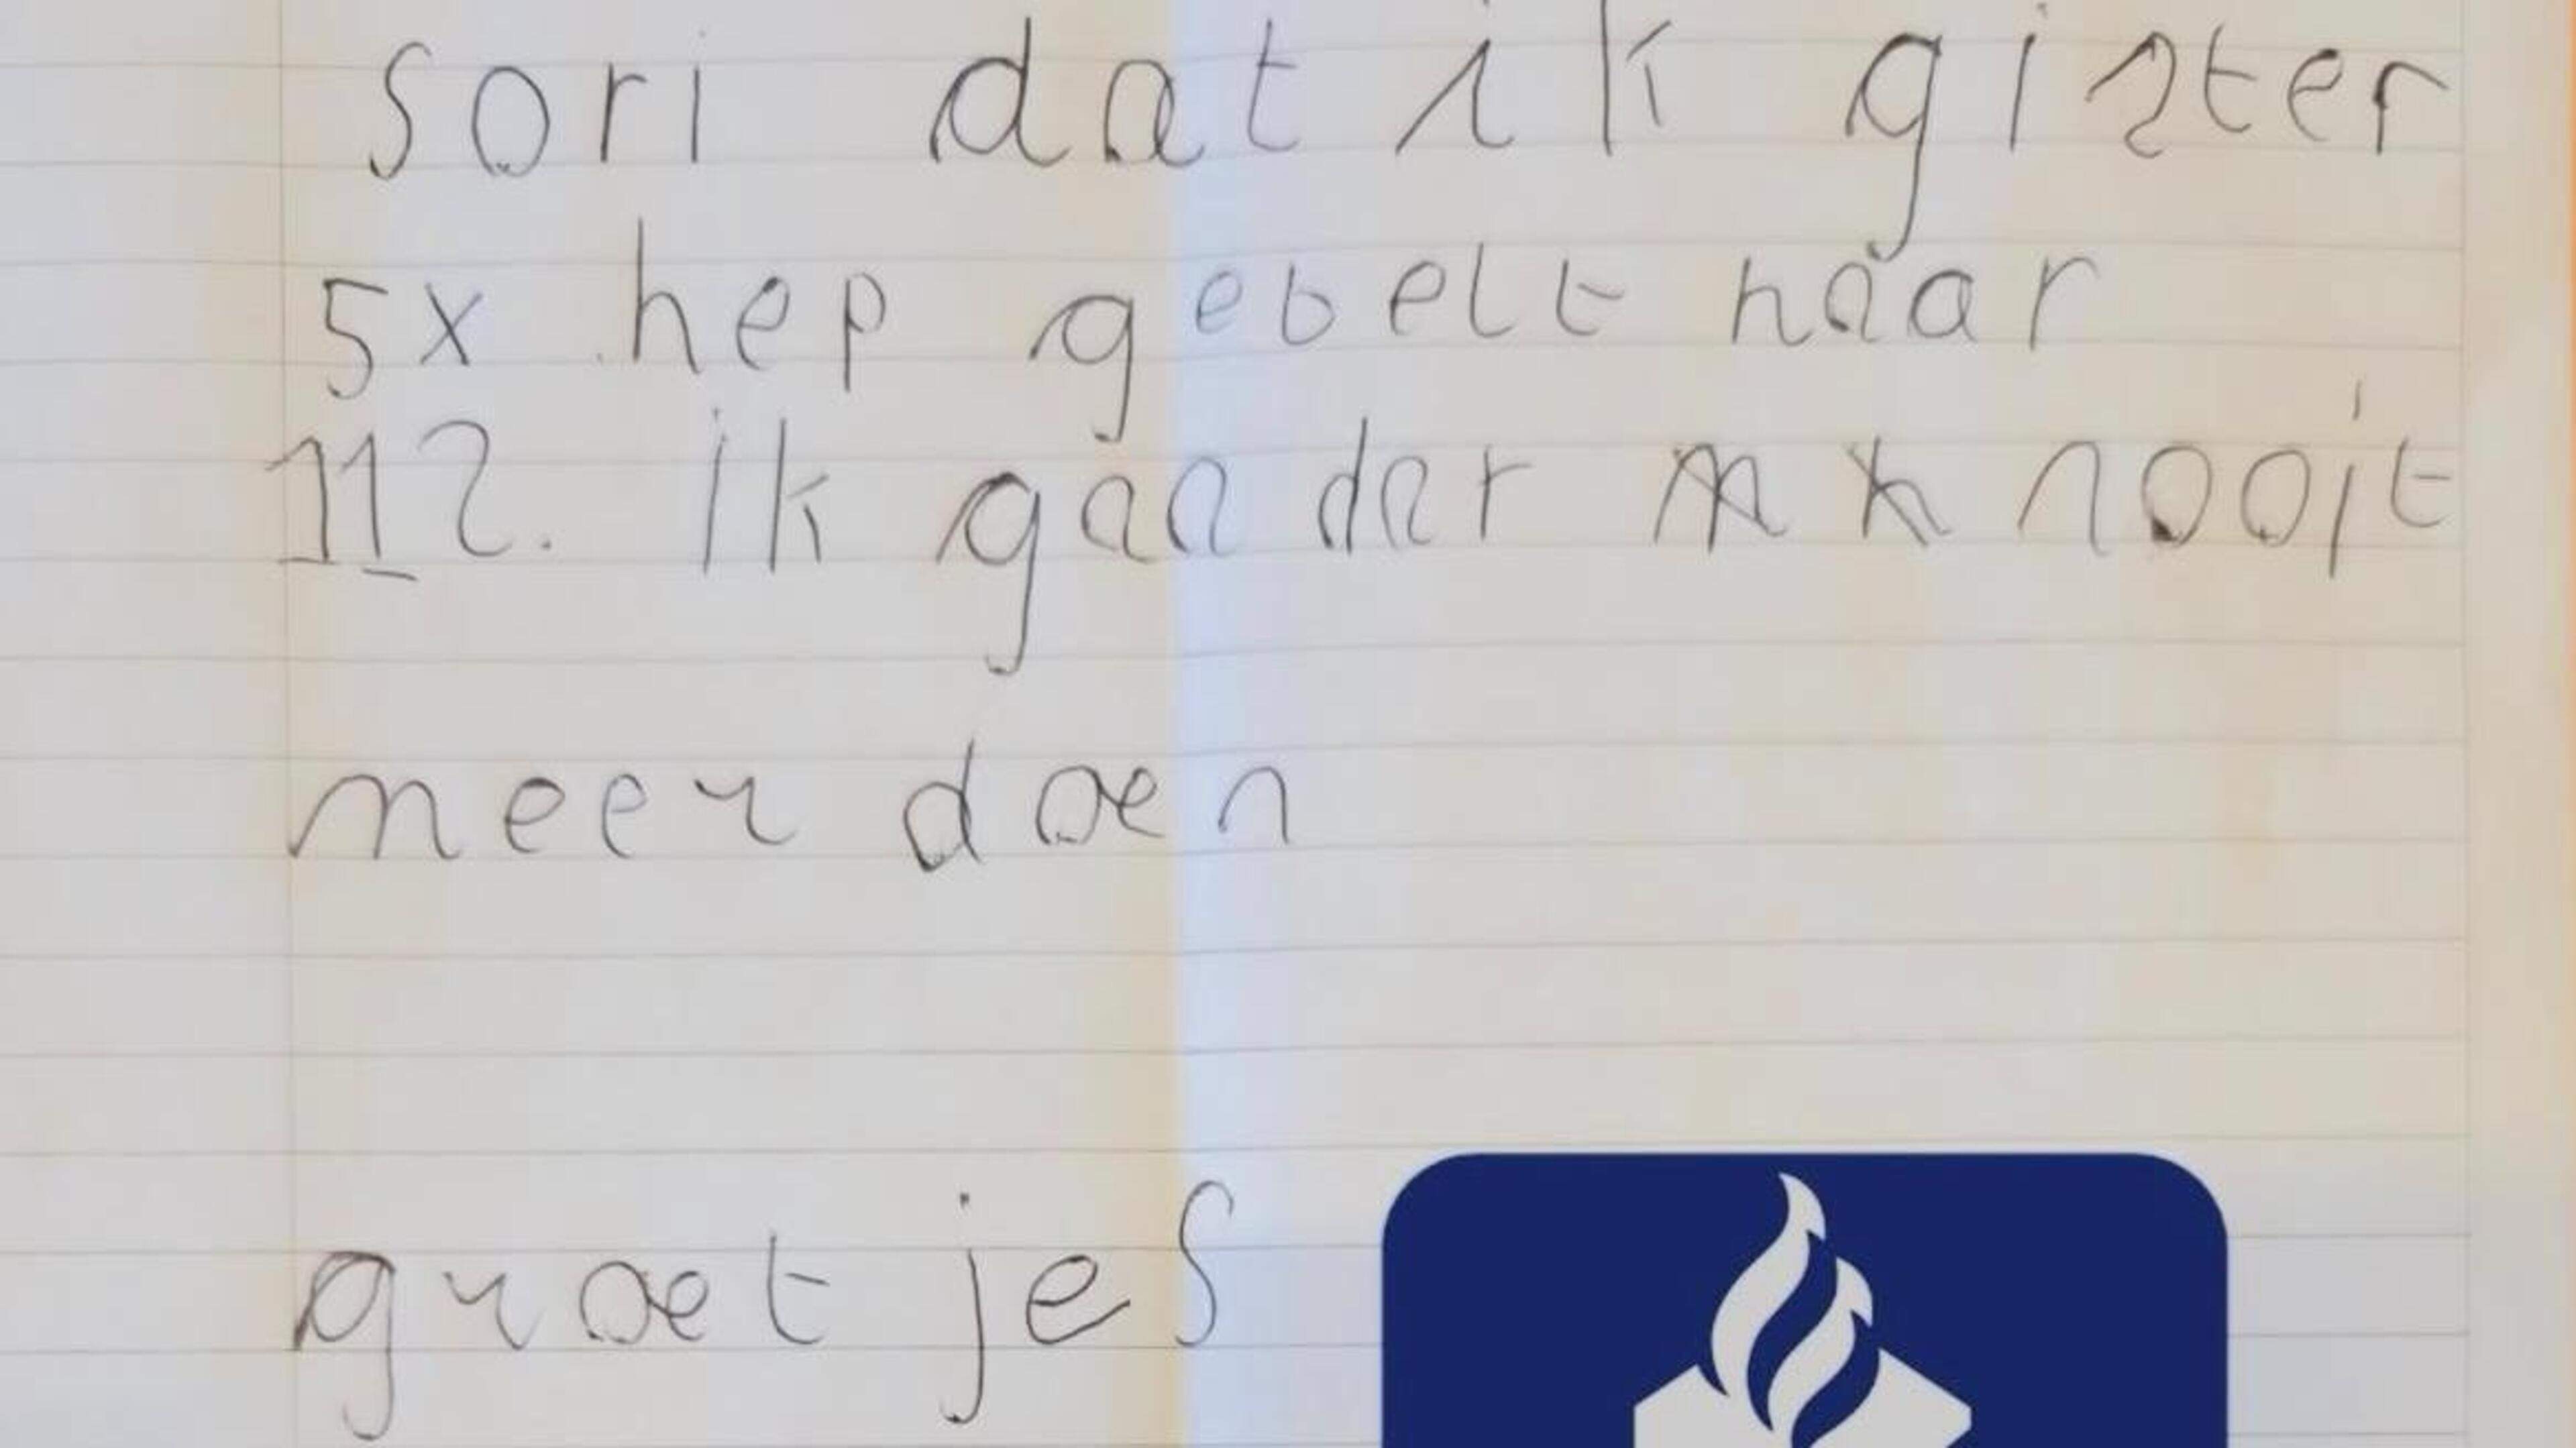 sori dat ik gister
5x hep gebelt naar
112. ik gaa dat nooit
meer doen
groetjes